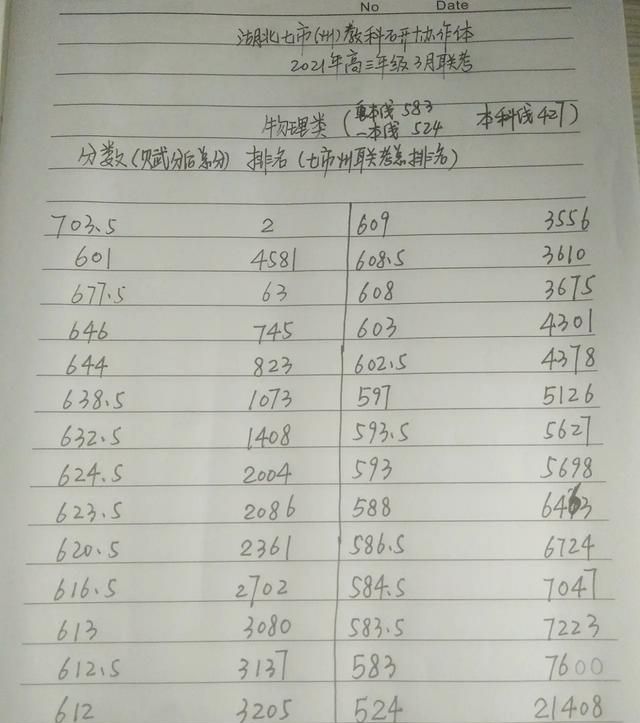 No Date
湖北七市(州)教科研协作体
2021年高三年级3月联考
物理类 (重本线 583 本科线427)
一本线 524
分数(赋分后总分) 排名(七市州联考总排名)
703.5 2 609 3556
601 4581 608.5 3610
677.5 63 608 3675
646 745 603 4301
644 823 602.5 4378
638.5 1073 597 5126
632.5 1408 593.5 5627
624.5 2004 593 5698
623.5 2086 588
620.5 2361 586.5 6724
616.5 2702 584.5 7047
613 3080 583.5 7223
612.5 3137 583 7600
612 3205 524 21408